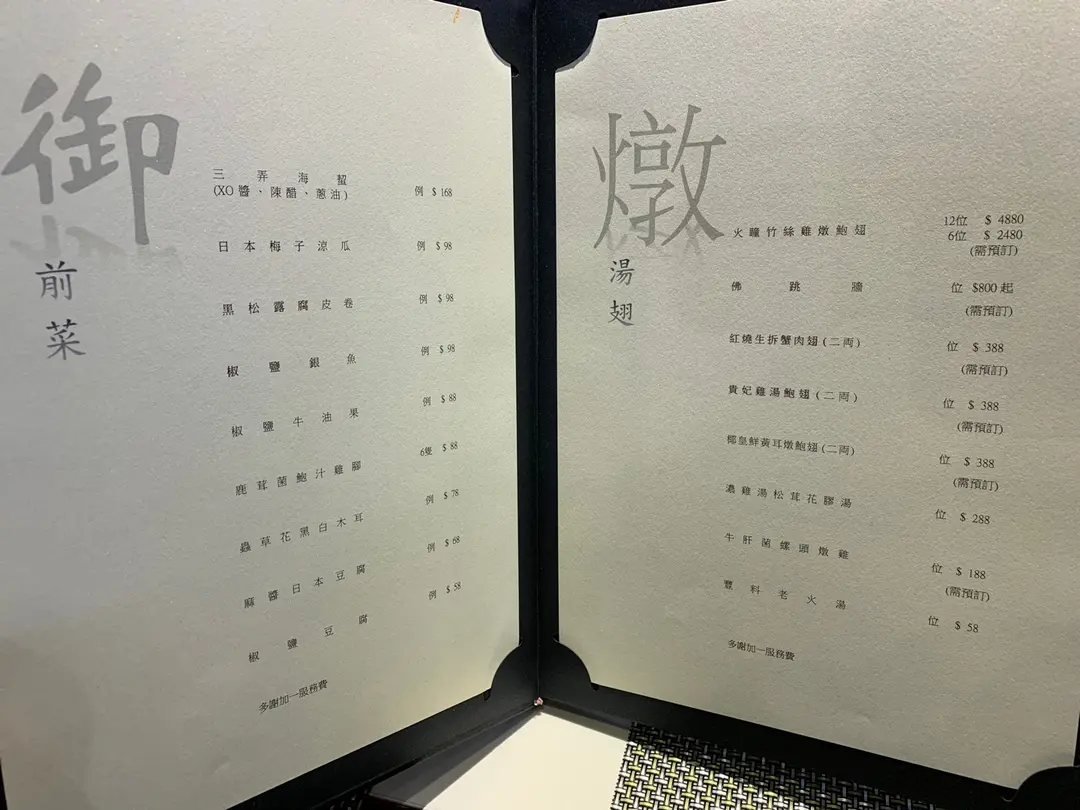 御
前菜
三弄海蜇 例 $ 168
(XO醬、陳醋、蔥油)
日本梅子涼瓜 例 $ 98
黑松露腐皮卷 例 $ 98
椒鹽銀魚 例 $ 98
椒鹽牛油果 例 $ 88
鹿茸菌鮑汁雞腳 6隻 $ 88
蟲草花黑白木耳 例 $ 78
麻醬日本豆腐 例 $ 68
椒鹽豆腐 例 $ 58
多謝加一服務費
燉
湯翅
火瞳竹絲雞燉鮑翅 12位 $ 4880
6位 $ 2480
(需預訂)
佛跳牆 位 $800 起
(需預訂)
紅燒生拆蟹肉翅(二両) 位 $ 388
(需預訂)
貴妃雞湯鮑翅(二両) 位 $ 388
(需預訂)
椰皇鮮黃耳燉鮑翅(二両) 位 $ 388
(需預訂)
濃雞湯松茸花膠湯 位 $ 288
牛肝菌螺頭燉雞 位 $ 188
(需預訂)
豐料老火湯 位 $ 58
多謝加一服務費